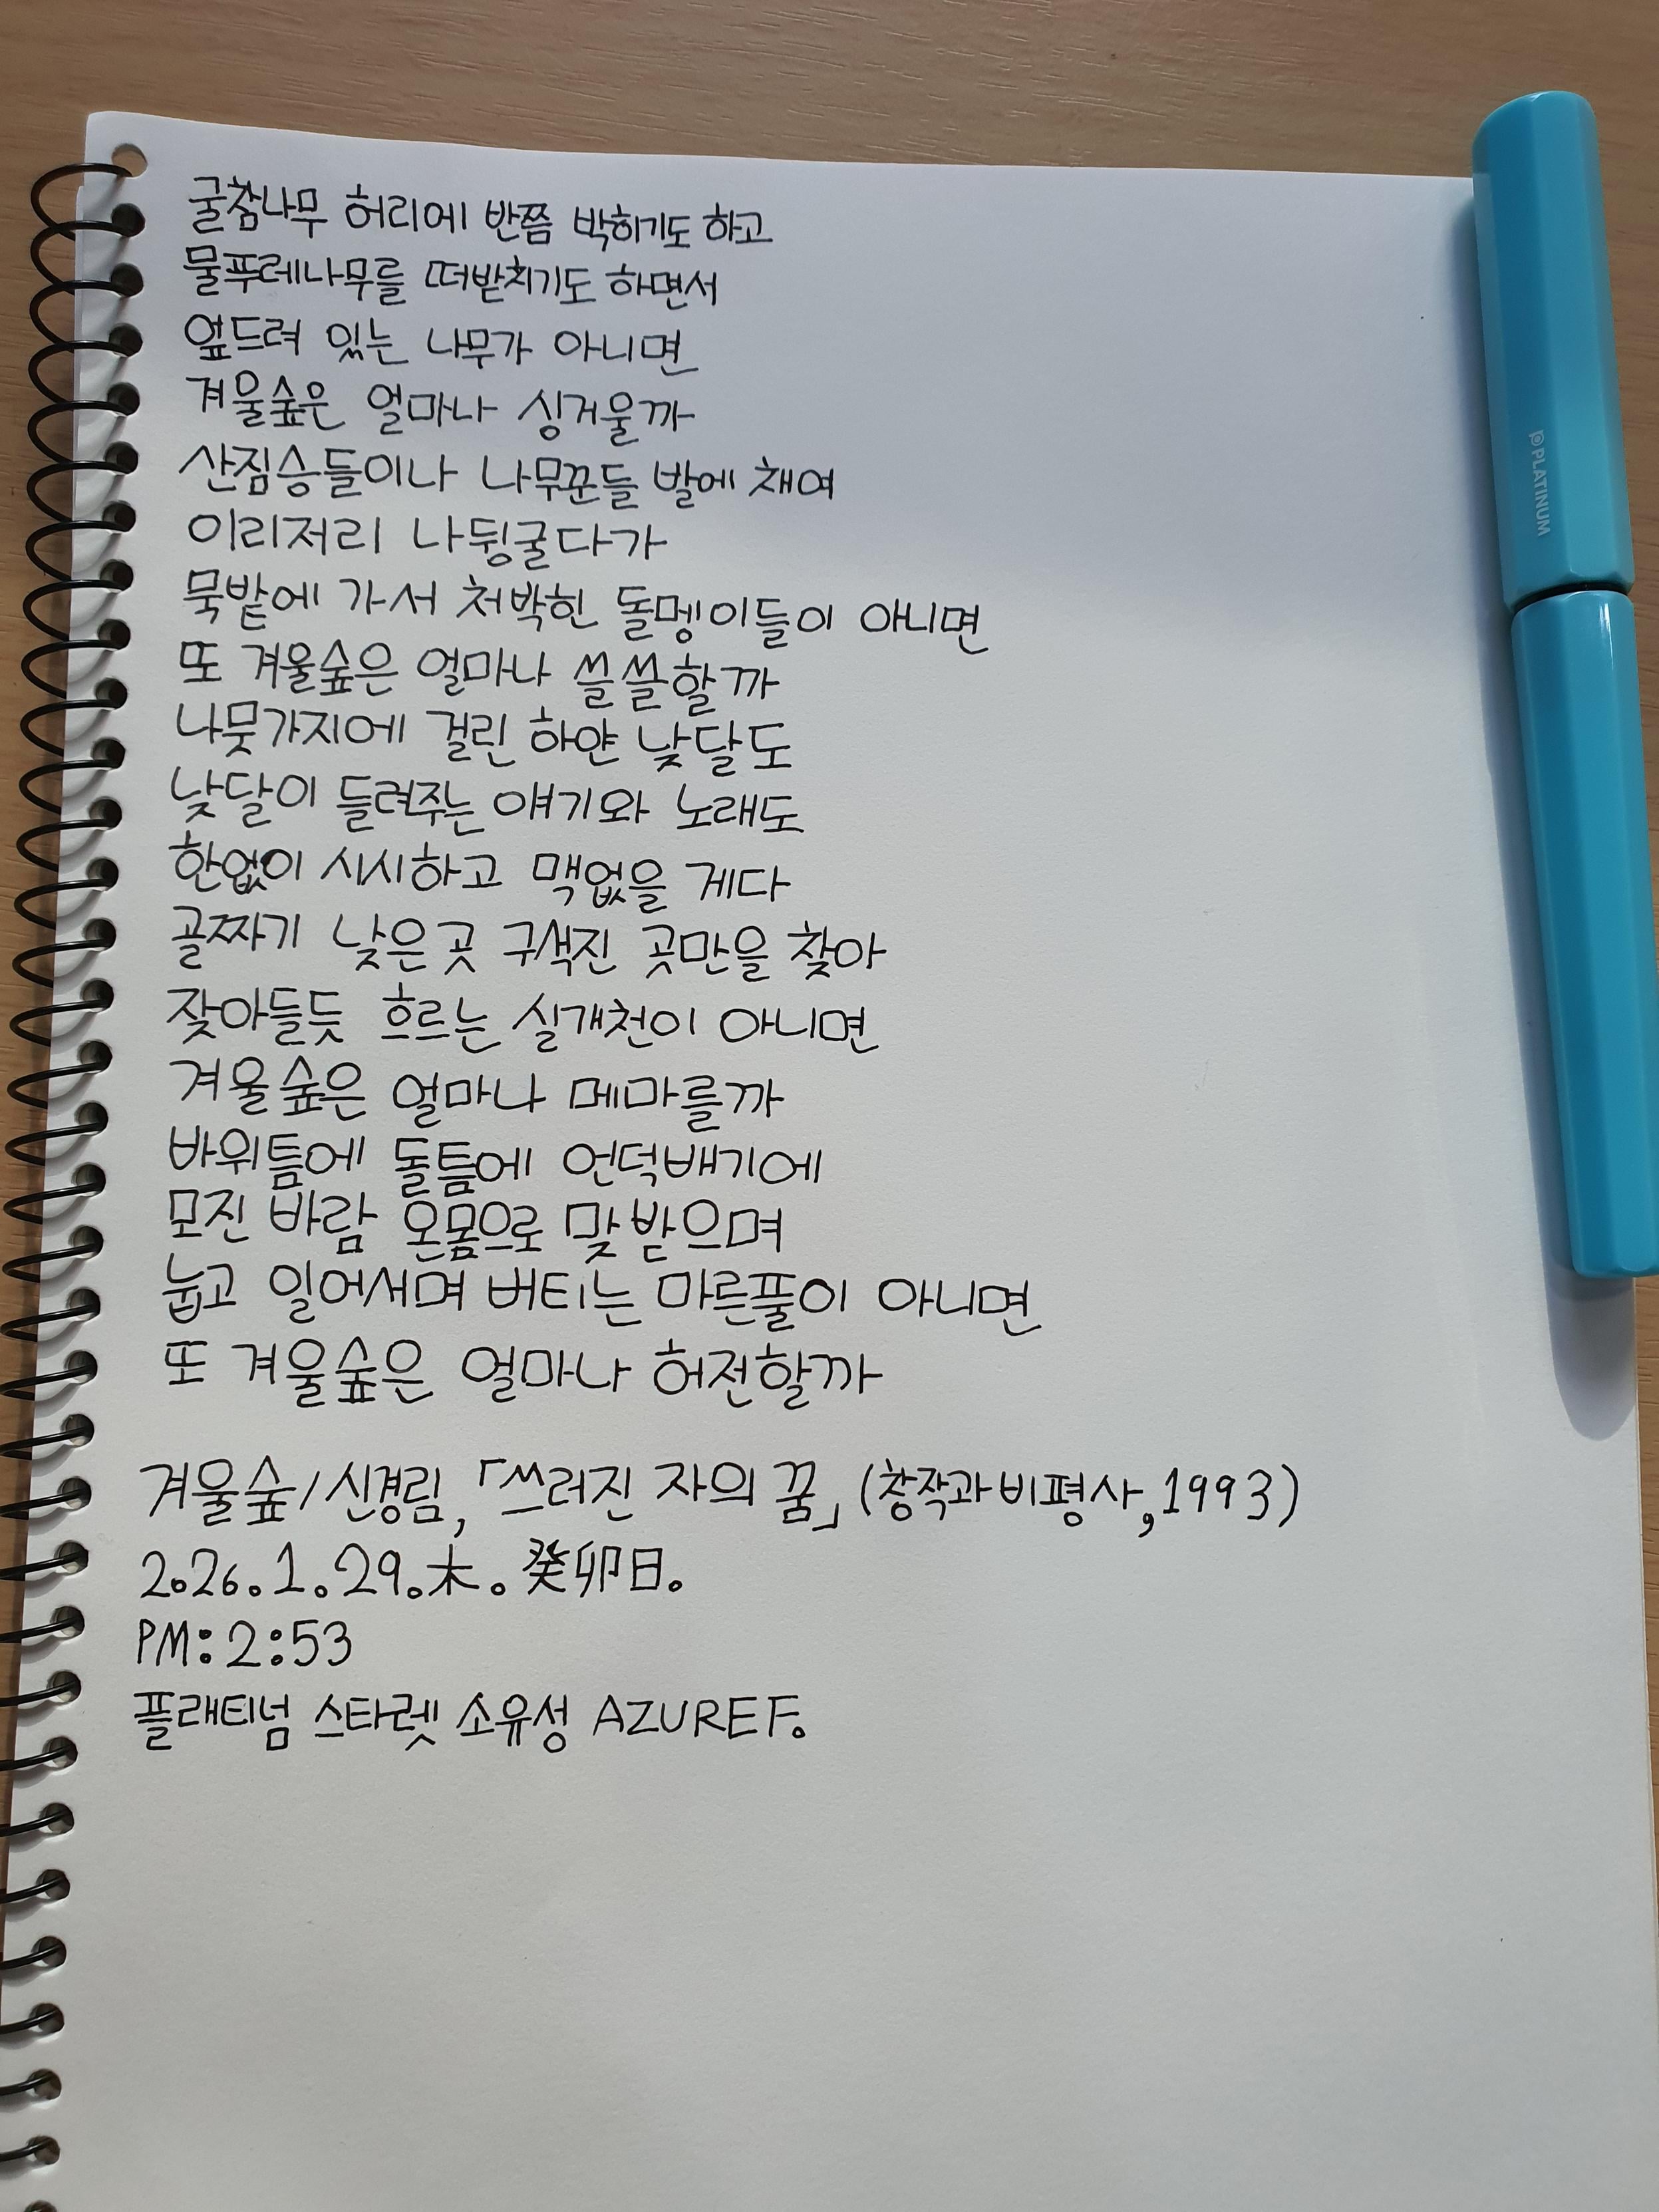 굴참나무 허리에 반쯤 박히기도 하고
물푸레나무를 떠받치기도 하면서
엎드려 있는 나무가 아니면
겨울숲은 얼마나 싱거울까
산짐승들이나 나무꾼들 발에 채여
이리저리 나뒹굴다가
묵밭에 가서 처박힌 돌멩이들이 아니면
또 겨울숲은 얼마나 쓸쓸할까
나뭇가지에 걸린 하얀 낮달도
낮달이 들려주는 얘기와 노래도
한없이 시시하고 맥없을 게다
골짜기 낮은 곳 구석진 곳만을 찾아
잦아들듯 흐르는 실개천이 아니면
겨울숲은 얼마나 메마를까
바위틈에 돌틈에 언덕배기에
모진 바람 온몸으로 맞받으며
눕고 일어서며 버티는 마른풀이 아니면
또 겨울숲은 얼마나 허전할까
겨울숲/신경림,「쓰러진 자의 꿈」(창작과비평사,1993)
2.26.1.29.木.癸卯日.
PM:2:53
플래티넘 스타렛 소유성 AZUREF.
PLATINUM